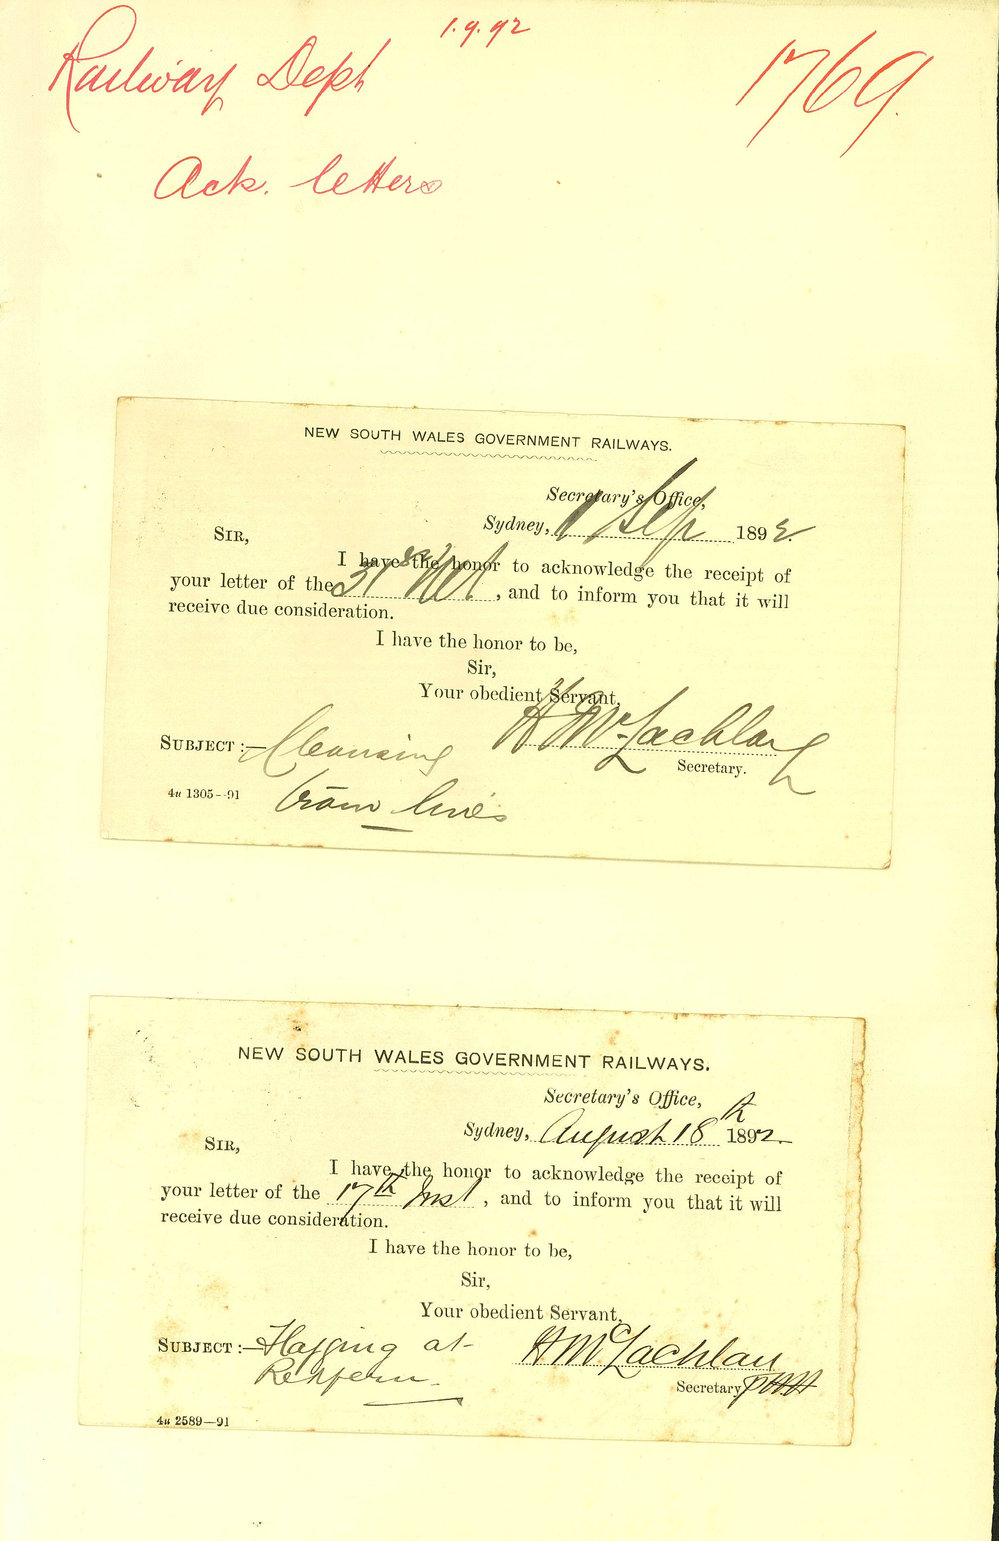 1.9.92
Railway Dept
1769.
Ack. letters
NEW SOUTH WALES GOVERNMENT RAILWAYS.
Secretary's Office,
Sydney, 1 Sep 1892.
SIR,
I have the honor to acknowledge the receipt of
your letter of the 31st Ult, and to inform you that it will
receive due consideration.
I have the honor to be,
Sir,
Your obedient Servant,
H McLachlan
SUBJECT :— Cleansing
Secretary.
4u 1305--91
tram lines
NEW SOUTH WALES GOVERNMENT RAILWAYS.
Secretary's Office,
Sydney, August 18th 1892
SIR,
I have the honor to acknowledge the receipt of
your letter of the 17th Inst, and to inform you that it will
receive due consideration.
I have the honor to be,
Sir,
Your obedient Servant,
SUBJECT :— Flagging at
H McLachlan
Redfern
Secretary
4u 2589—91